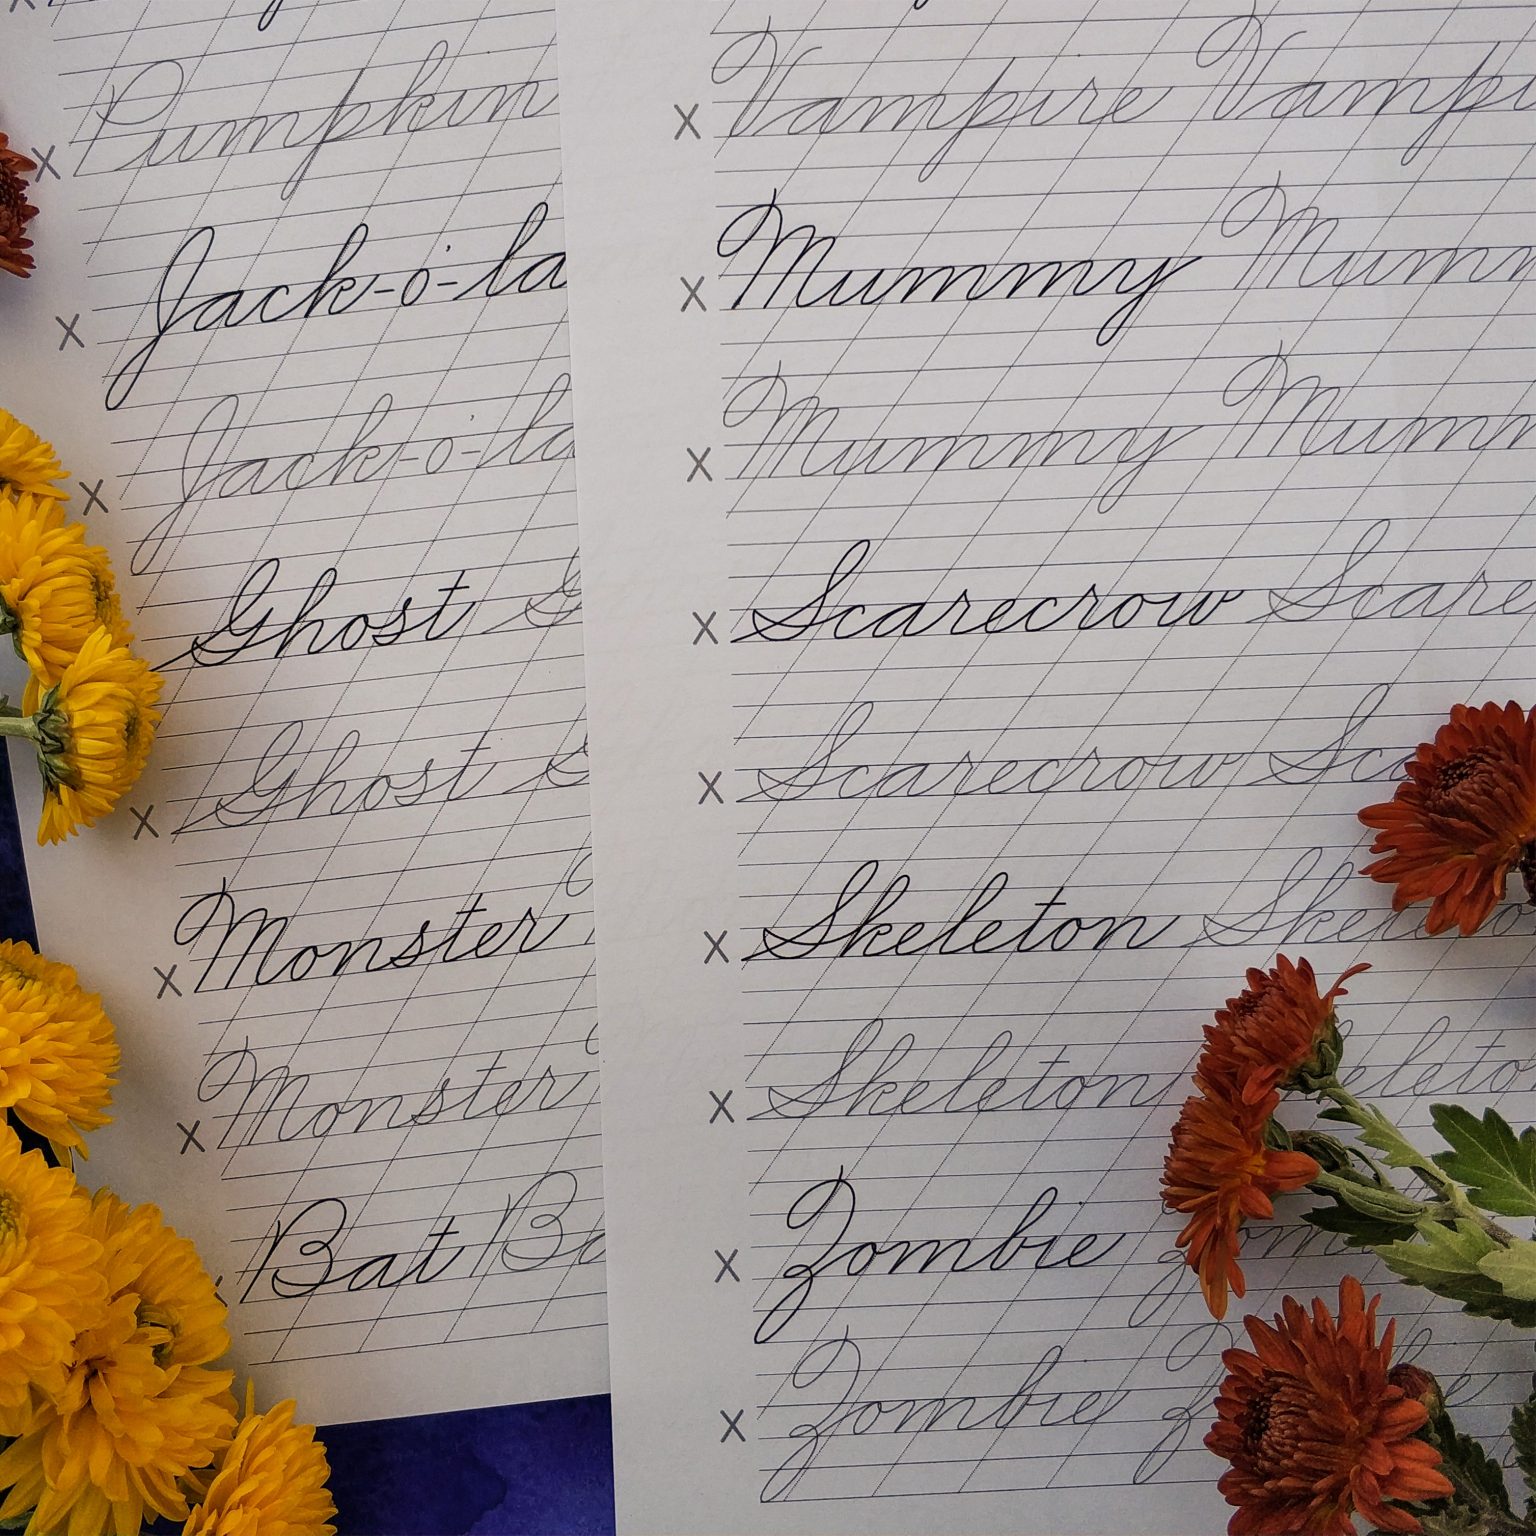 x Pumpkin
x Jack-o'-la
x Jack-o'-la
Ghost G
x Ghost G
x Monster
x Monster
Bat Ba
x Vampire Vampi
x Mummy Mumm
x Mummy Mumm
x Scarecrow Scare
x Scarecrow Sca
x Skeleton Skeleto
x Skeleton keleto
x Zombie Zom
x Zombie Z